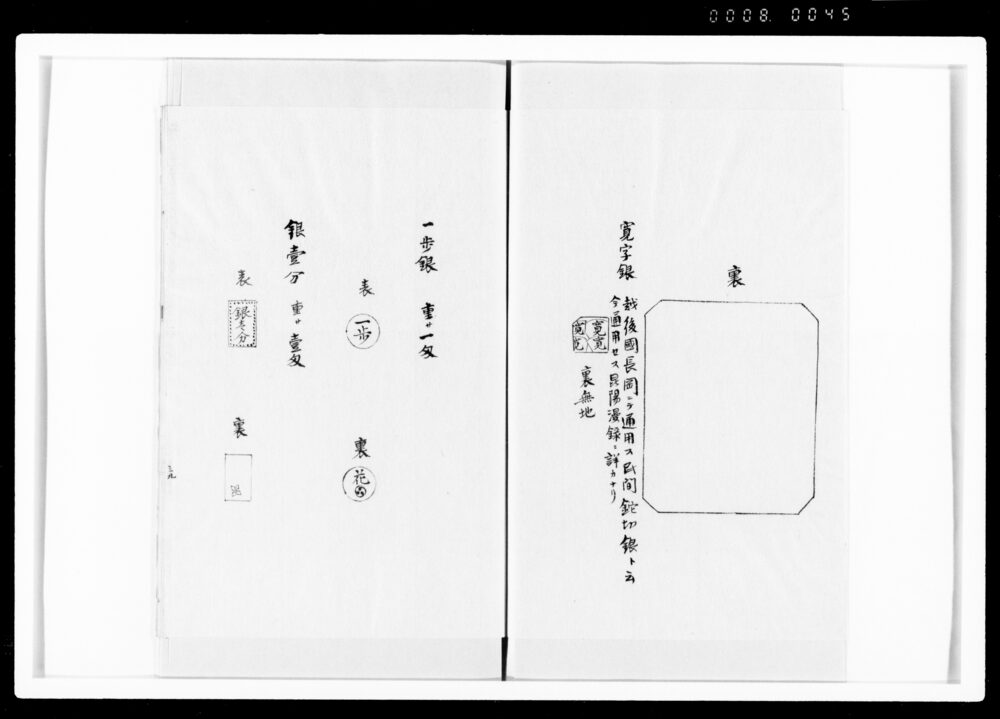 0008. 0045
裏
寛字銀
越後國長岡ニテ通用ス民間鉈切銀ト云
今通用セス昆陽漫録ニ詳カナリ
寛寛
寛寛
裏無地
一歩銀 重サ一匁
表
一歩
裏
花
銀壹分 重サ壹匁
表
銀壱分
裏